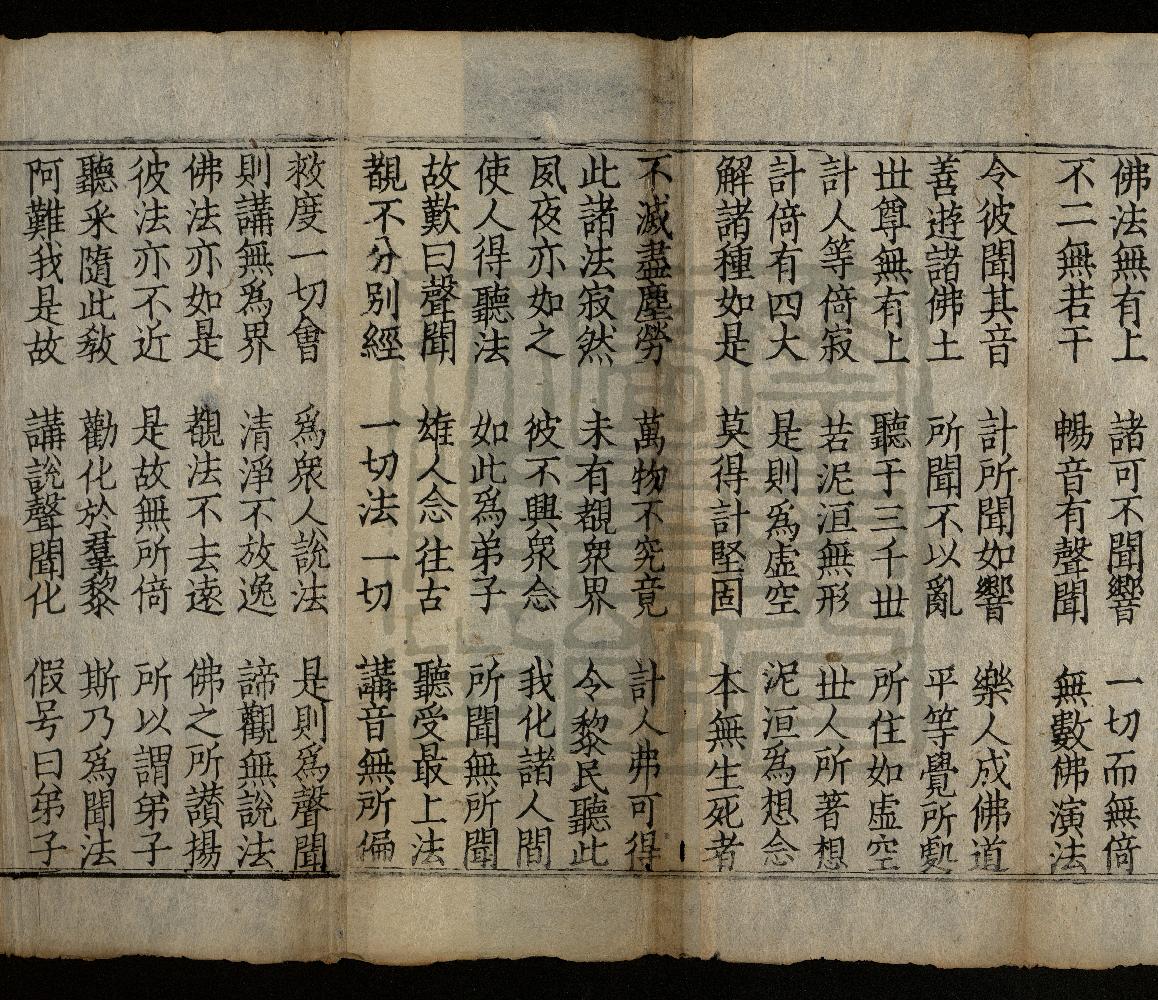 佛法無有上　諸可不聞響　一切而無倚
不二無若干　暢音有聲聞　無數佛演法
令彼聞其音　計所聞如響　樂人成佛道
善遊諸佛土　所聞不以亂　平等覺所
世尊無有上　聽于三千世　所住如虛空
計人等倚寂　若泥洹無形　世人所著想
計倚有四大　是則爲虛空　泥洹爲想念
解諸種如是　莫得計堅固　本無生死者
不滅盡塵勞　萬物不究竟　計人弗可得
此諸法寂然　未有覩衆界　令黎民聽此
夙夜亦如之　彼不興衆念　我化諸人間
使人得聽法　如此爲弟子　所聞無所聞
故歎曰聲聞　雄人念往古　聽受最上法
覩不分別經　一切法一切　講音無所偏
救度一切會　爲衆人說法　是則爲聲聞
則講無爲界　清淨不放逸　諦觀無說法
佛法亦如是　覩法不去遠　佛之所讃揚
彼法亦不近　是故無所倚　所以謂弟子
聽采隨此教　勸化於羣黎　斯乃爲聞法
阿難我是故　講說聲聞化　假号曰弟子